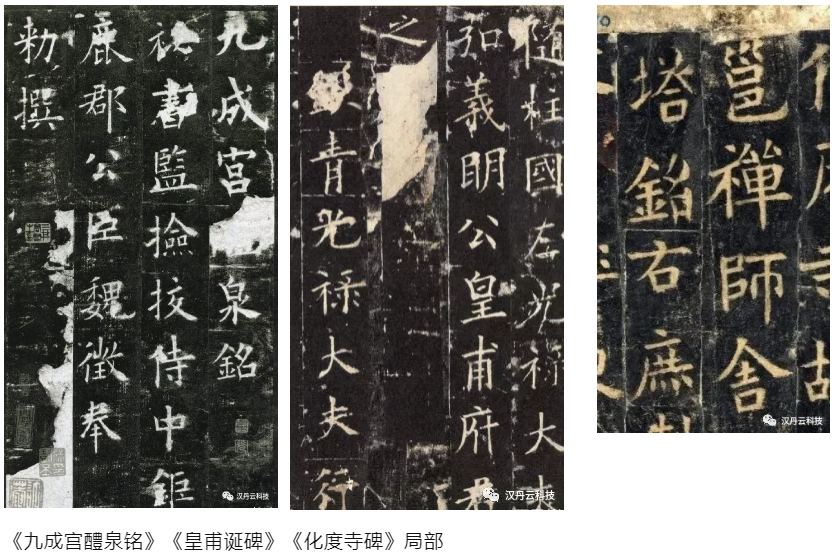 九成宮泉銘
秘書監撿挍侍中鉅
鹿郡公臣魏徵奉
勅撰
隨柱國左光禄大夫
弘義明公皇甫府君
之
青光禄大夫行
寺故
邕禪師舍
塔銘右庶
汉丹云科技
汉丹云科技
汉丹云科技
《九成宫醴泉铭》《皇甫诞碑》《化度寺碑》局部